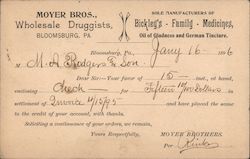 MOYER BROS.,
Wholesale Druggists,
BLOOMSBURG, PA.
SOLE MANUFACTURERS OF
Bickley's - Family - Medicines,
Oil of Gladness and German Tincture.
Bloomsburg, Pa., Jany 16 1896
M. A. Rodgers & Son.
Dear Sir:-Your favor of 15 inst., at hand,
enclosing Check for Fifteen Dollars in
settlement of Invoice and have placed the same
to the credit of your account, with thanks.
Soliciting a continuance of your orders, we remain,
Yours Respectfully, MOYER BROTHERS.
Per